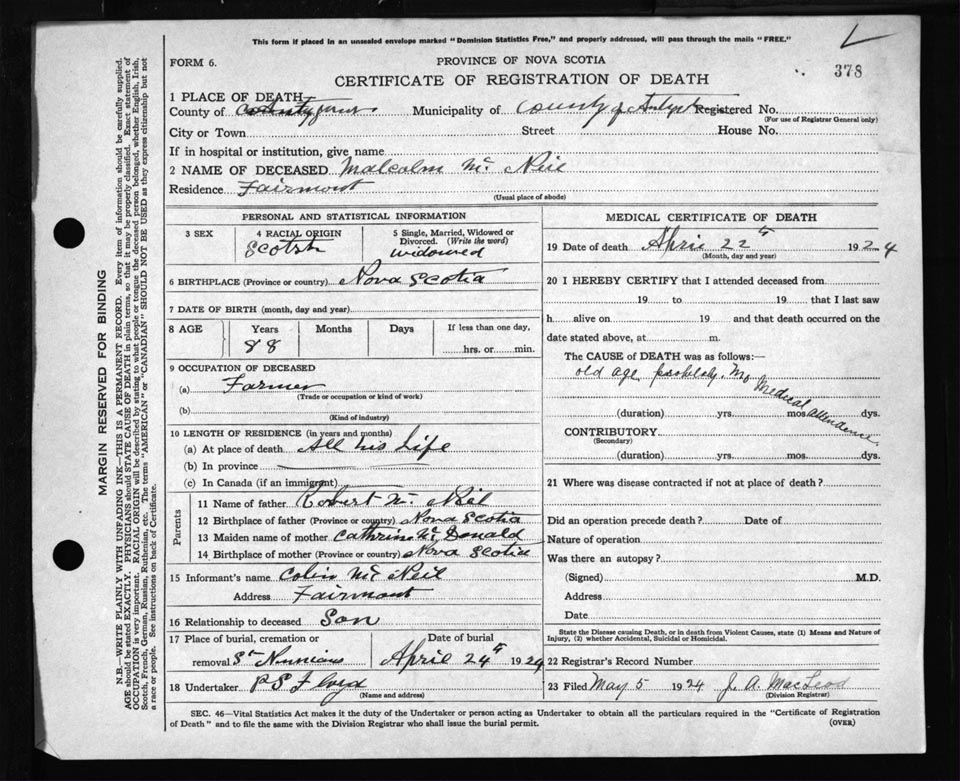 This form if placed in an unsealed envelope marked "Dominion Statistics Free," and properly addressed, will pass through the mails "FREE."
FORM 6.
PROVINCE OF NOVA SCOTIA
378
CERTIFICATE OF REGISTRATION OF DEATH
1 PLACE OF DEATH
County of Municipality of County of Registered No.
(For use of Registrar General only)
City or Town Street House No.
If in hospital or institution, give name
2 NAME OF DECEASED Malcolm Mc Neil
Residence Fairmont
(Usual place of abode)
PERSONAL AND STATISTICAL INFORMATION
3 SEX
4 RACIAL ORIGIN
Scotch
5 Single, Married, Widowed or Divorced. (Write the word)
widowed
6 BIRTHPLACE (Province or country) Nova Scotia
7 DATE OF BIRTH (month, day and year)
8 AGE Years Months Days If less than one day,
88 hrs. or min.
9 OCCUPATION OF DECEASED
(a) Farmer
(Trade or occupation or kind of work)
(b)
(Kind of industry)
10 LENGTH OF RESIDENCE (in years and months)
(a) At place of death All his life
(b) In province
(c) In Canada (if an immigrant)
Parents
11 Name of father Robert Mc Neil
12 Birthplace of father (Province or country) Nova Scotia
13 Maiden name of mother Mc Donald
14 Birthplace of mother (Province or country) Nova Scotia
15 Informant's name Colin Mc Neil
Address Fairmont
16 Relationship to deceased Son
17 Place of burial, cremation or Date of burial
removal St April 24th 1924
18 Undertaker P S Floyd
(Name and address)
MEDICAL CERTIFICATE OF DEATH
19 Date of death April 22nd 1924
(Month, day and year)
20 I HEREBY CERTIFY that I attended deceased from
19 to 19 that I last saw
h alive on 19 and that death occurred on the
date stated above, at m.
The CAUSE of DEATH was as follows:—
old age probably. No Medical attendence
(duration) yrs. mos. dys.
CONTRIBUTORY
(Secondary)
(duration) yrs. mos. dys.
21 Where was disease contracted if not at place of death?
Did an operation precede death? Date of
Nature of operation
Was there an autopsy?
(Signed) M.D.
Address
Date
State the Disease causing Death, or in death from Violent Causes, state (1) Means and Nature of
Injury, (2) whether Accidental, Suicidal or Homicidal.
22 Registrar's Record Number
23 Filed May 5 1924 J. A. MacLeod
(Division Registrar)
SEC. 46—Vital Statistics Act makes it the duty of the Undertaker or person acting as Undertaker to obtain all the particulars required in the "Certificate of Registration
of Death" and to file the same with the Division Registrar who shall issue the burial permit.
(OVER)
MARGIN RESERVED FOR BINDING
N.B.—WRITE PLAINLY WITH UNFADING INK—THIS IS A PERMANENT RECORD. Every item of information should be carefully supplied.
AGE should be stated EXACTLY. PHYSICIANS should STATE CAUSE OF DEATH in plain terms, so that it may be properly classified. Exact statement of
OCCUPATION is very important. RACIAL ORIGIN will be described by stating to what people or tongue the deceased person belonged, whether English, Irish,
Scotch, French, German, Russian, Ruthenian, etc. The terms "AMERICAN" or "CANADIAN" SHOULD NOT BE USED as they express citizenship but not
a race or people. See instructions on back of Certificate.